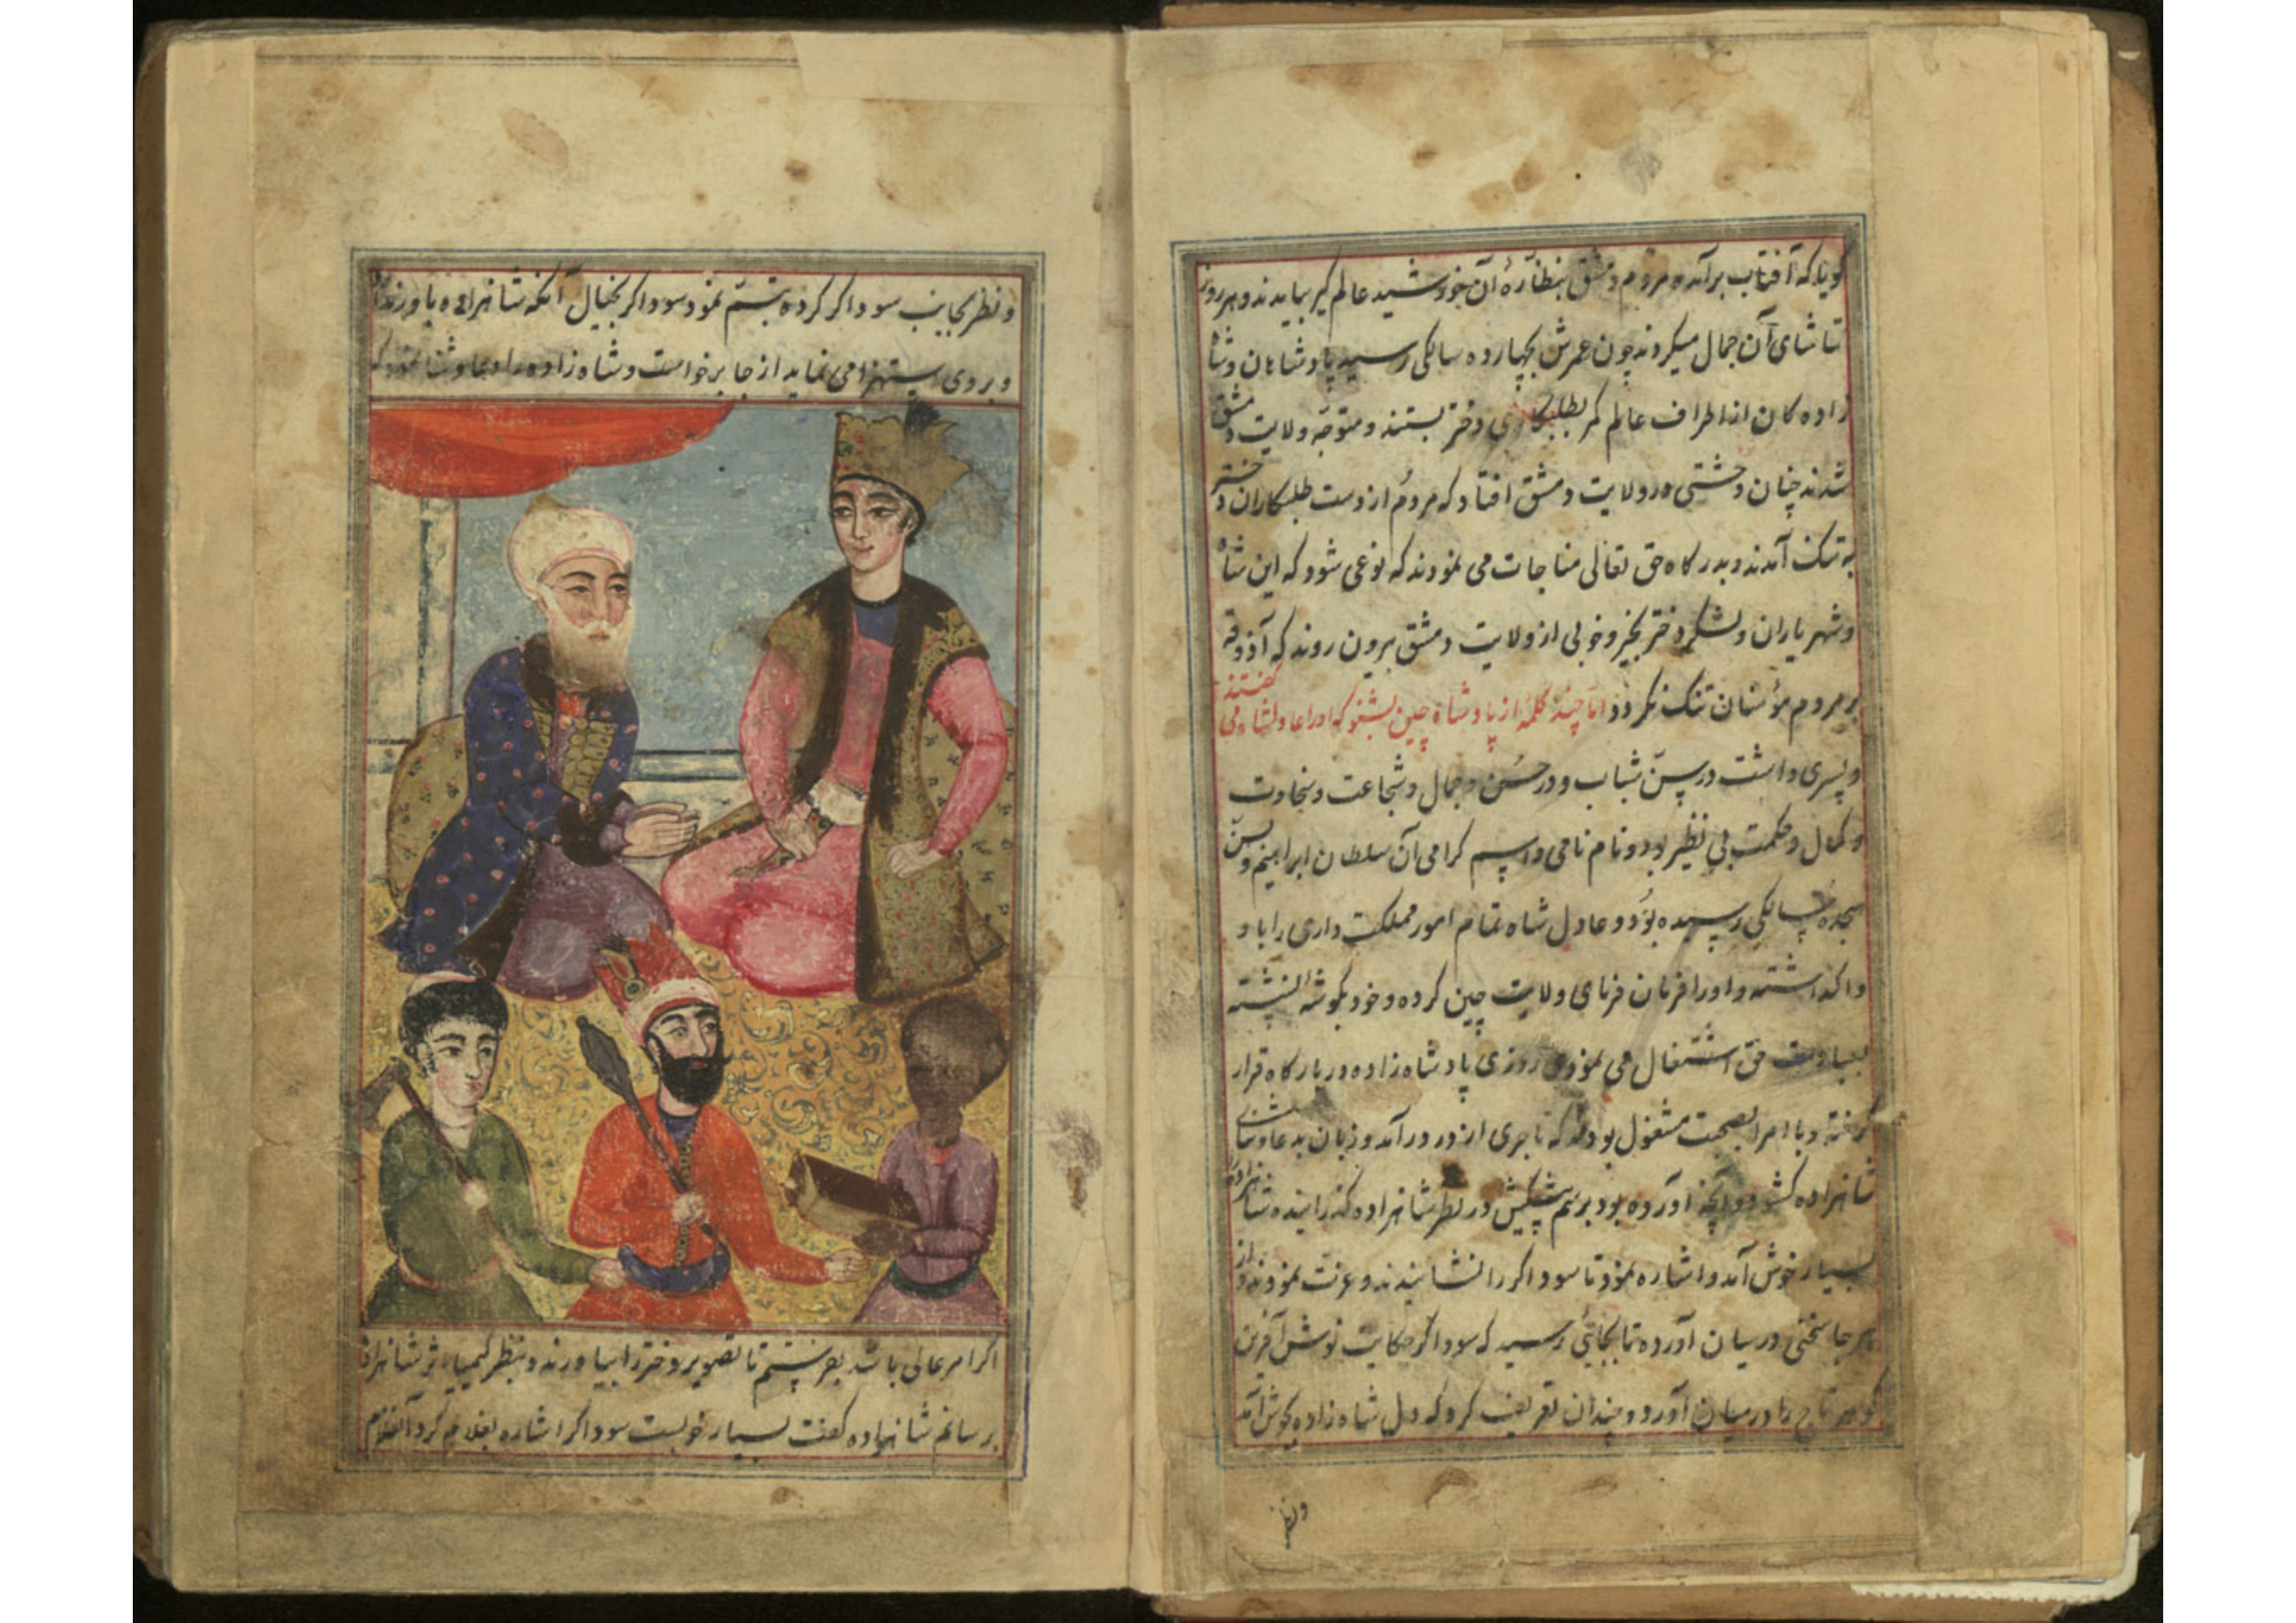 کویا که آفتاب برآمده مردم دمشق بنظارهٔ آن خورشید عالم کیر بیایدند و هر روز
تماشای آن جمال میکردند چون عمرش بچهارده سالکی رسید پادشاهان و شاه
زاده کان از اطراف عالم کمر بطلبکاری دختر بستند و متوجّه ولایت دمشق
شدند چنان وحشتی در ولایت دمشق افتاد که مردم از دست طلبکاران دختر
به تنک آمدند و بدرکاه حق تعالی مناجات می نمودند که نوعی شود که این شاه
و شهریاران و لشکر دختر بخیر و خوبی از ولایت دمشق بیرون روند که آذوقه
بر مردم مؤمنان تنک نکردد امّا چند کلمه از پادشاه چین بشنو که او را عادلشاه می کفتند
و پسری داشت در سنّ شباب و در حسن و جمال و شجاعت و سخاوت
و کمال و حکمت بی نظیر بود و نام نامی و اسم کرامی آن سلطان ابراهیم و سنّ
هجده سالکی رسیده بود و عادل شاه تمام امور مملکت داری را با و
واکذاشته و او را فرمان فرمای ولایت چین کرده و خود بکوشهٔ نشسته
بعبادت حق اشتغال می نمود روزی پادشاه زاده در بارکاه قرار
کرفته و با امرا بصحبت مشغول بودند که تاجری از در درآمد و زبان بدعا و ثنای
شاهزاده کشود و آنچه آورده بود برسم پیشکش در نظر شاهزاده کذرانیده شاهزاده
بسیار خوش آمد و اشاره نمود تا سوداکر را نشانیدند و عزت نمودند و از
هر جا سخنی در میان آورده تا بجایی رسید که سوداکر حکایت نوش آفرین
کوهر تاج را در میان آورد و چندان تعریف کرد که دل شاه زاده بجوش آمد
و نظر
و نظر بجانب سوداکر کرده تبسّم نمود سوداکر بخیال آنکه شاهزاده باور ندارد
و بروی استهزا می نماید از جا برخواست و شاه زاده را دعا و ثنا نمود که
اکر امر عالی باشد بفرستم تا تصویر دختر را بیاورند و بنظر کیمیا اثر شاهزاده
برسانم شاهزاده کفت بسیار خوبست سوداکر اشاره بغلام کرد آن غلام